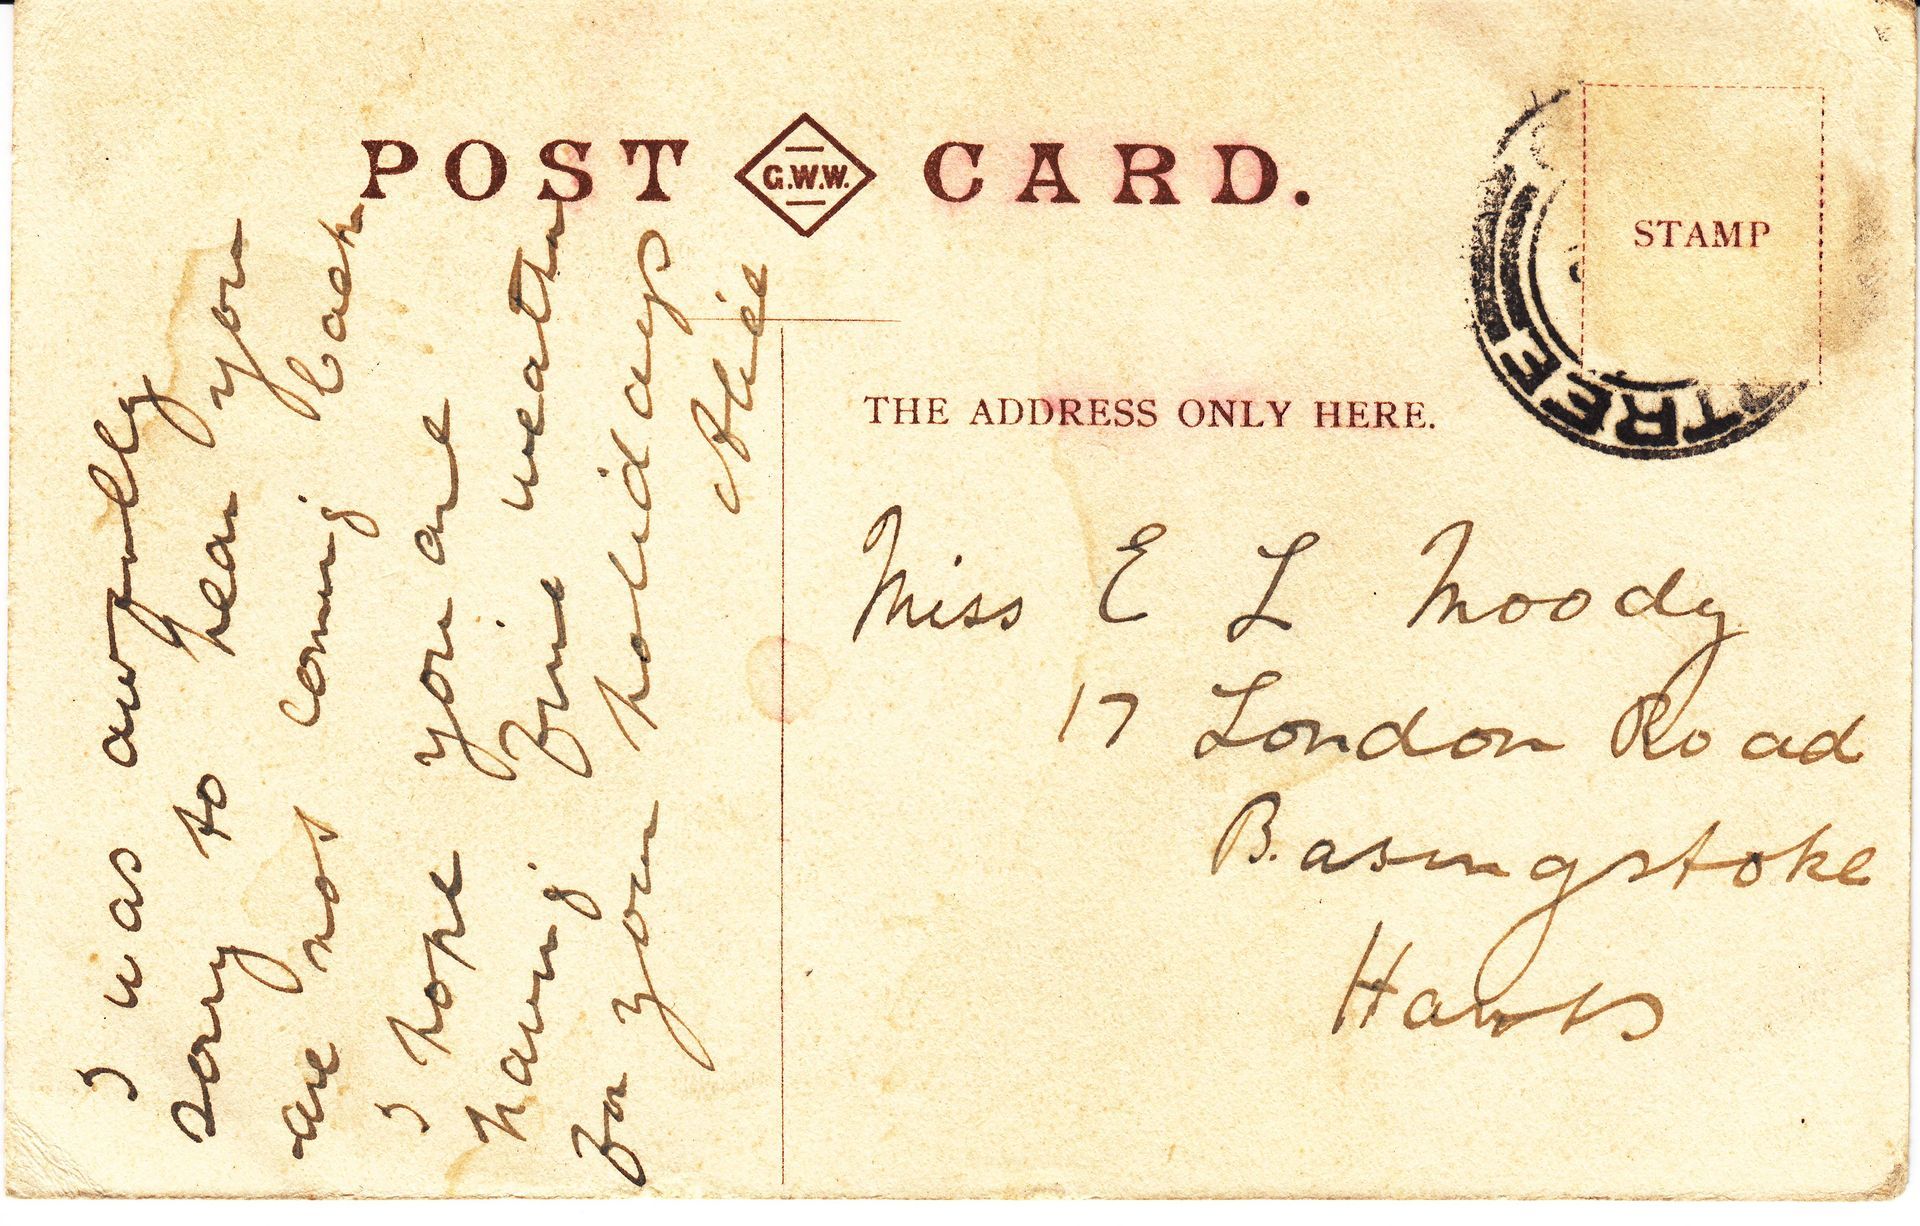 POST G.W.W. CARD.
STAMP
TREE
THE ADDRESS ONLY HERE.
I was awfully
sorry to hear you
are not coming back
I hope you are
having fine weather
for your holidays
Alice
Miss E L Moody
17 London Road
Basingstoke
Hants